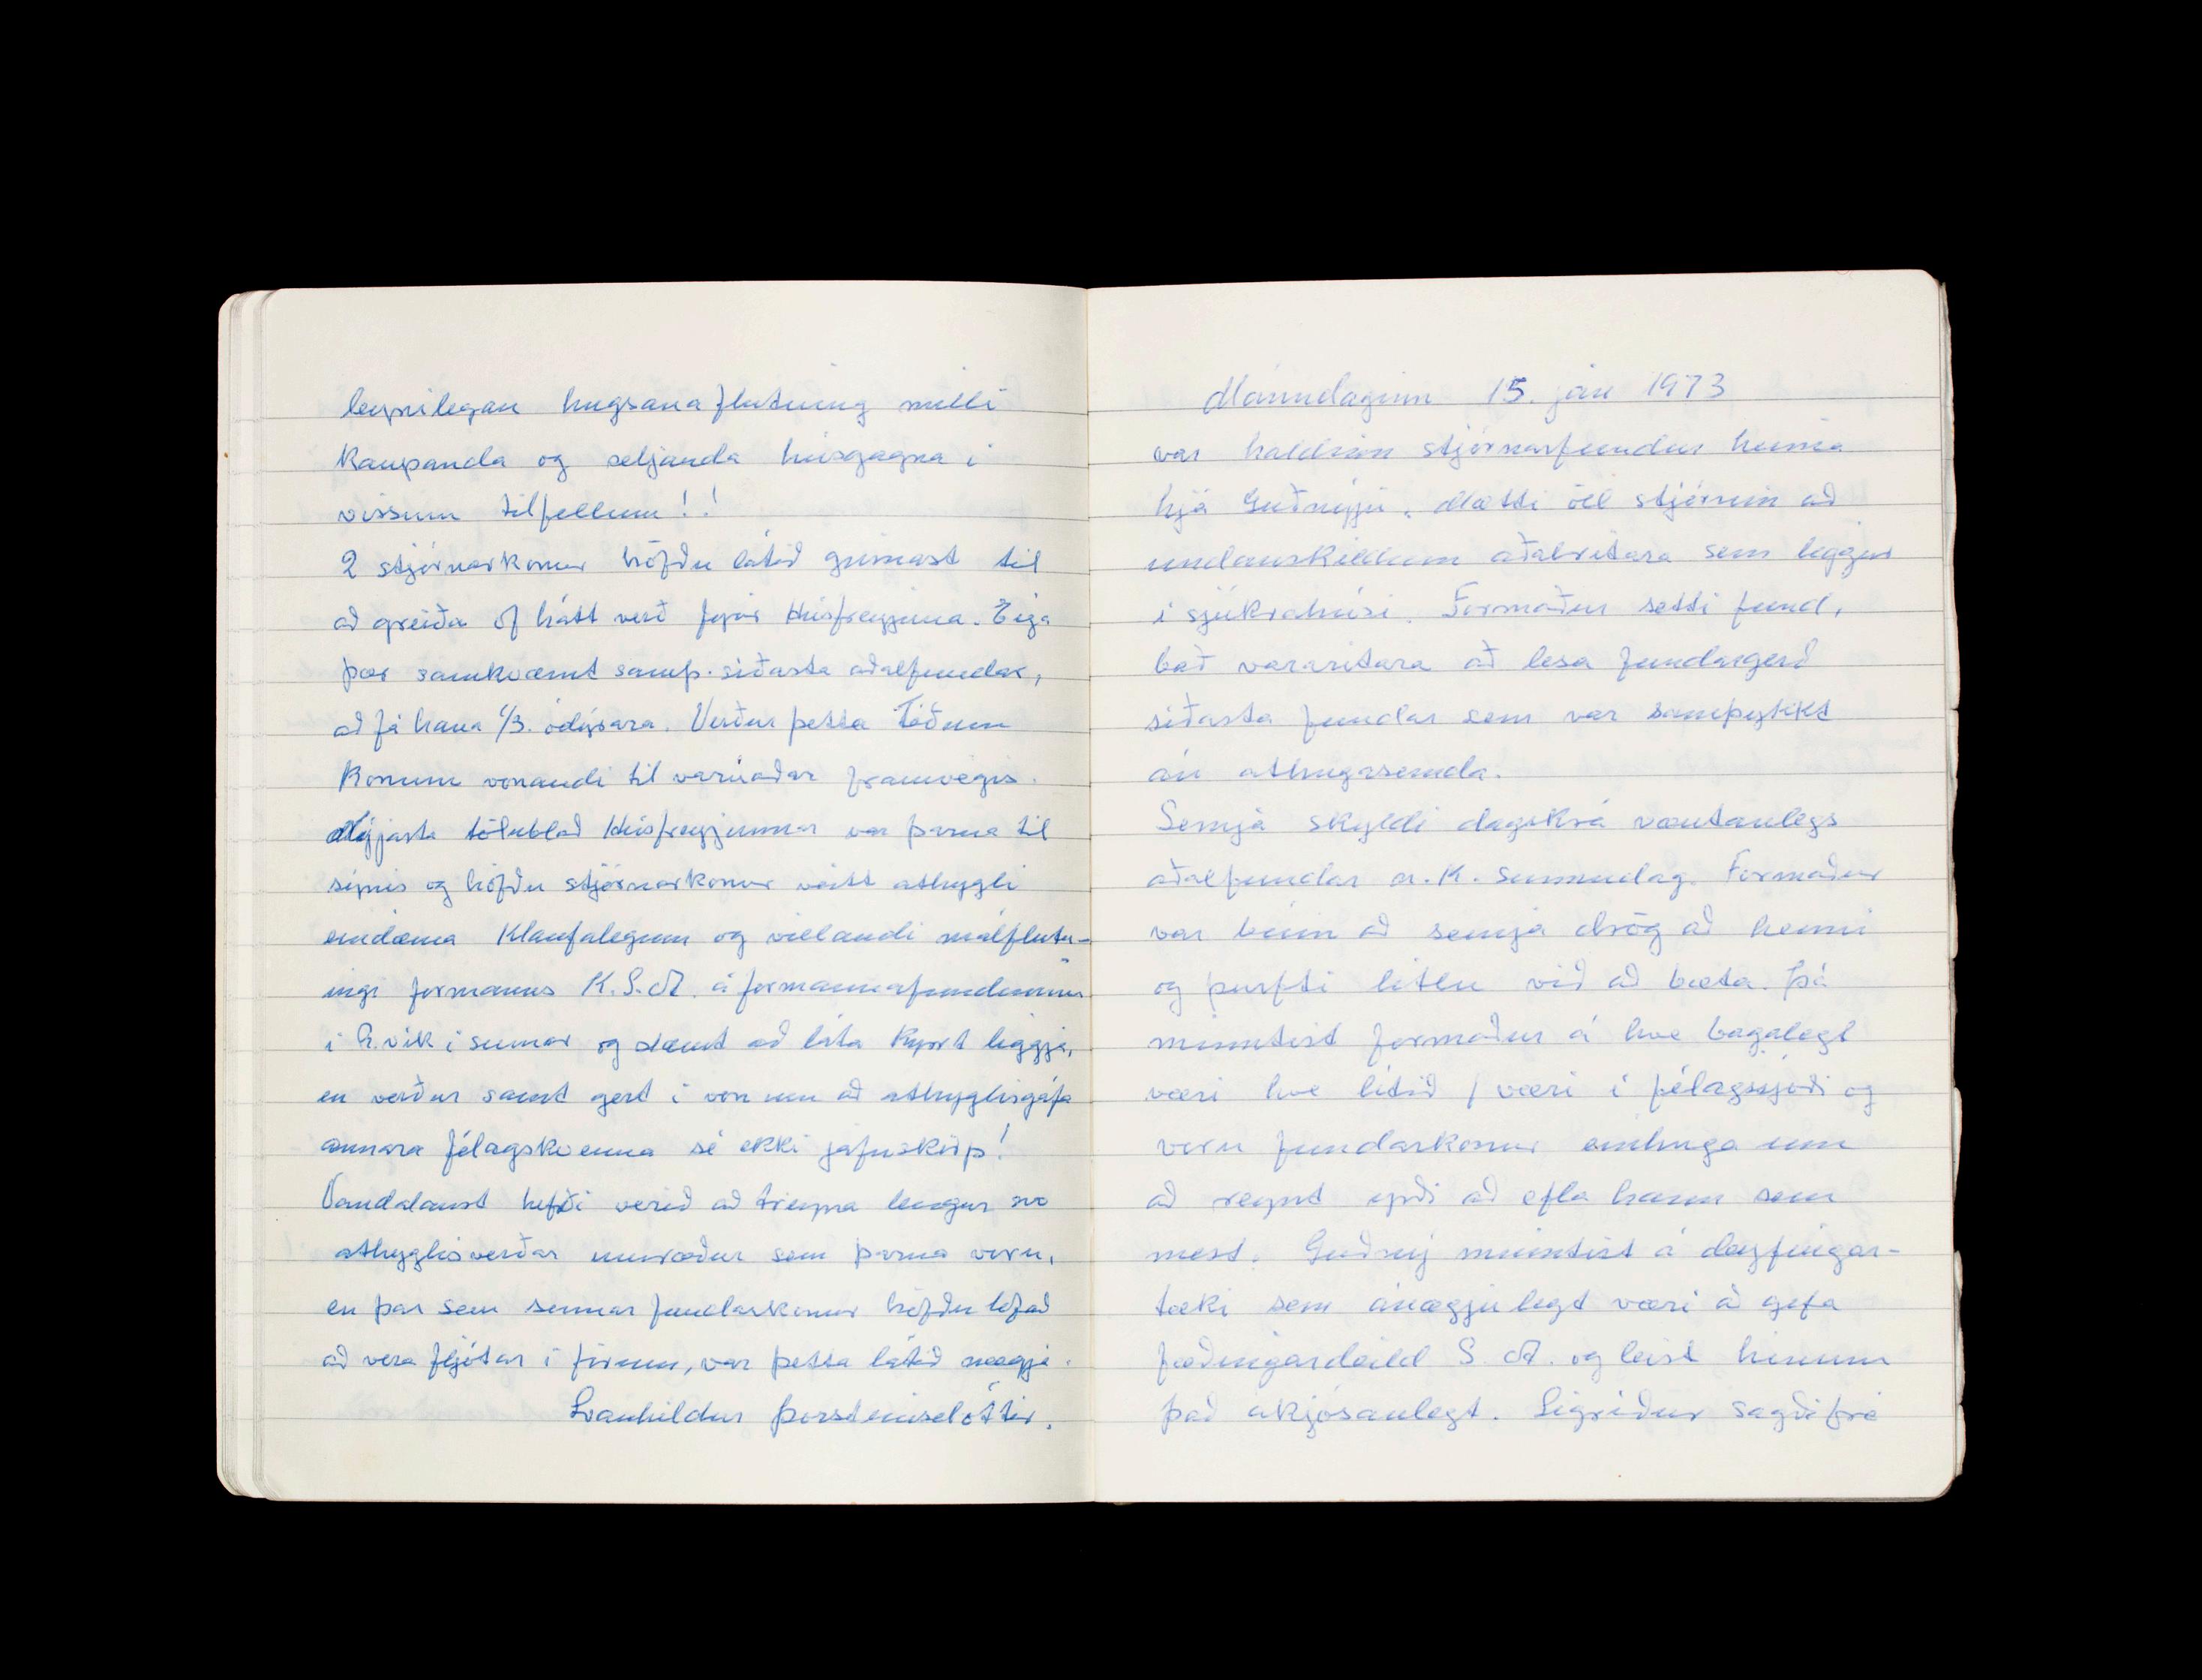 leynilegan hugsanaflutning milli
kaupanda og seljanda húsgagna í
vissum tilfellum!!
2 stjórnarkonur höfðu látið ginnast til
að greiða of hátt verð fyrir Húsfreyjuna. Eiga
þær samkvæmt samþ. síðasta aðalfundar,
að fá hana 1/3. ódýrara. Verður þetta téðum
konum vonandi til varnaðar framvegis.
Nýjasta tölublað Húsfreyjunnar var þarna til
sýnis og höfðu stjórnarkonur veitt athygli
eindæma klaufalegum og villandi málflutn-
ingi formanns K.S.A. á formannafundinum
í R.vík í sumar og dæmt að láta kyrrt liggja,
en verður samt gert í von um að athyglisgáfa
annara félagskvenna sé ekki jafnskörp!
Vandalaust hefði verið að treyna lengur svo
athyglisverðar umræður sem þarna voru,
en þar sem sumar fundarkonur höfðu lofað
að vera fljótar í förum, var þetta látið nægja.
Svanhildur Þorsteinsdóttir.
Mánudaginn 15. jan 1973
var haldinn stjórnarfundur heima
hjá Guðnýju. Mætti öll stjórnin að
undanskildum aðalritara sem liggur
í sjúkrahúsi. Formaður setti fund,
bað vararitara að lesa fundargerð
síðasta fundar sem var samþykkt
án athugasemda.
Semja skyldi dagskrá væntanlegs
aðalfundar n.k. sunnudag. Formaður
var búin að semja drög að henni
og þurfti litlu við að bæta. Þá
minntist formaður á hve bagalegt
væri hve lítið væri í félagssjóði og
voru fundarkonur einhuga um
að reynt yrði að efla hann sem
mest. Guðný minntist á deyfingar-
tæki sem ánægjulegt væri að gefa
fæðingardeild S.A. og leist hinum
það ákjósanlegt. Sigríður sagði frá